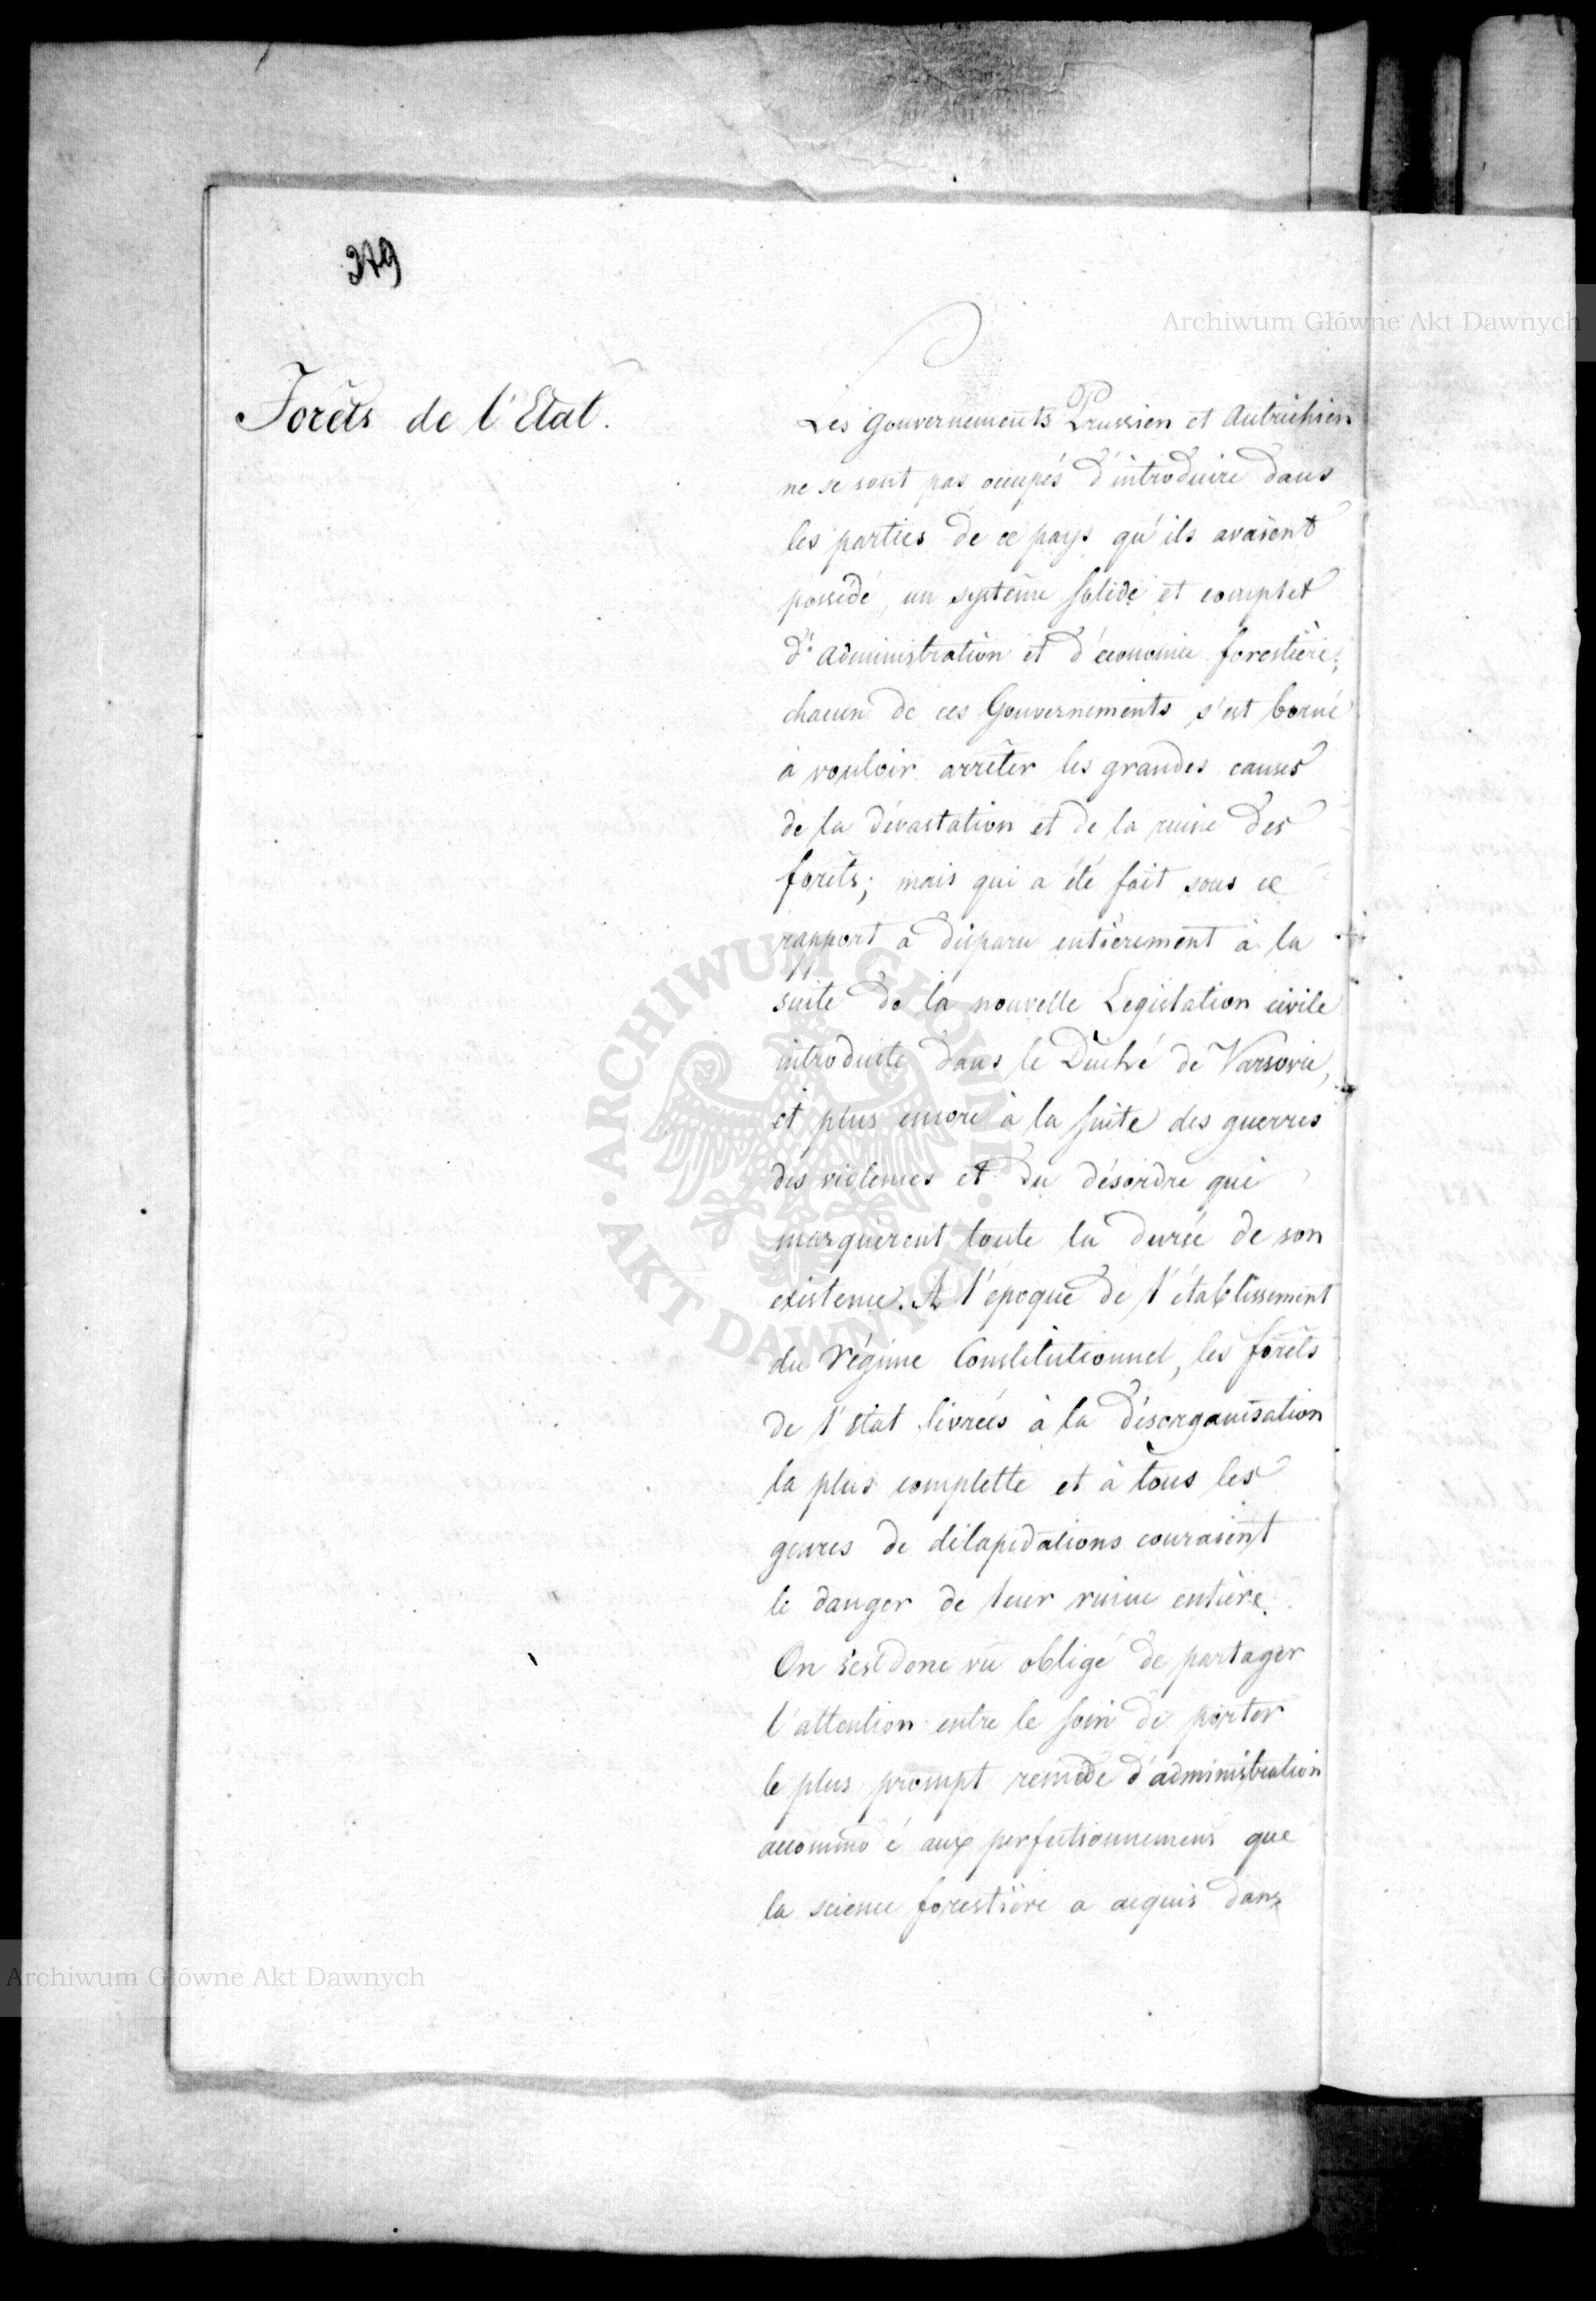 379
Forêts de l'Etat.
Les Gouvernements Prussien et Autrichien
ne se sont pas occupés d'introduire dans
les parties de ce pays qu'ils avaient
possédé, un système solide et complet
d'administration et d'économie forestière;
chacun de ces Gouvernements s'est borné
à vouloir arrêter les grandes causes
de la dévastation et de la ruine des
forêts; mais qui a été fait sous ce
rapport a disparu entièrement à la
suite de la nouvelle Legislation civile
introduite dans le Duché de Varsovie,
et plus encore à la suite des guerres
des violences et du désordre qui
marquèrent toute la durée de son
existence. A l'époque de l'établissement
du régime Constitutionnel, les forêts
de l'état livrées à la désorganisation
la plus complette et à tous les
genres de dilapidations couraient
le danger de leur ruine entière.
On s'est donc vu obligé de partager
l'attention entre le soin de porter
le plus prompt remède d'administration
accommo é aux perfectionnemens que
la science forestière a acquis dans
Archiwum Główne Akt Dawnych
ARCHIWUM GŁÓWNE AKT DAWNYCH
Archiwum Główne Akt Dawnych